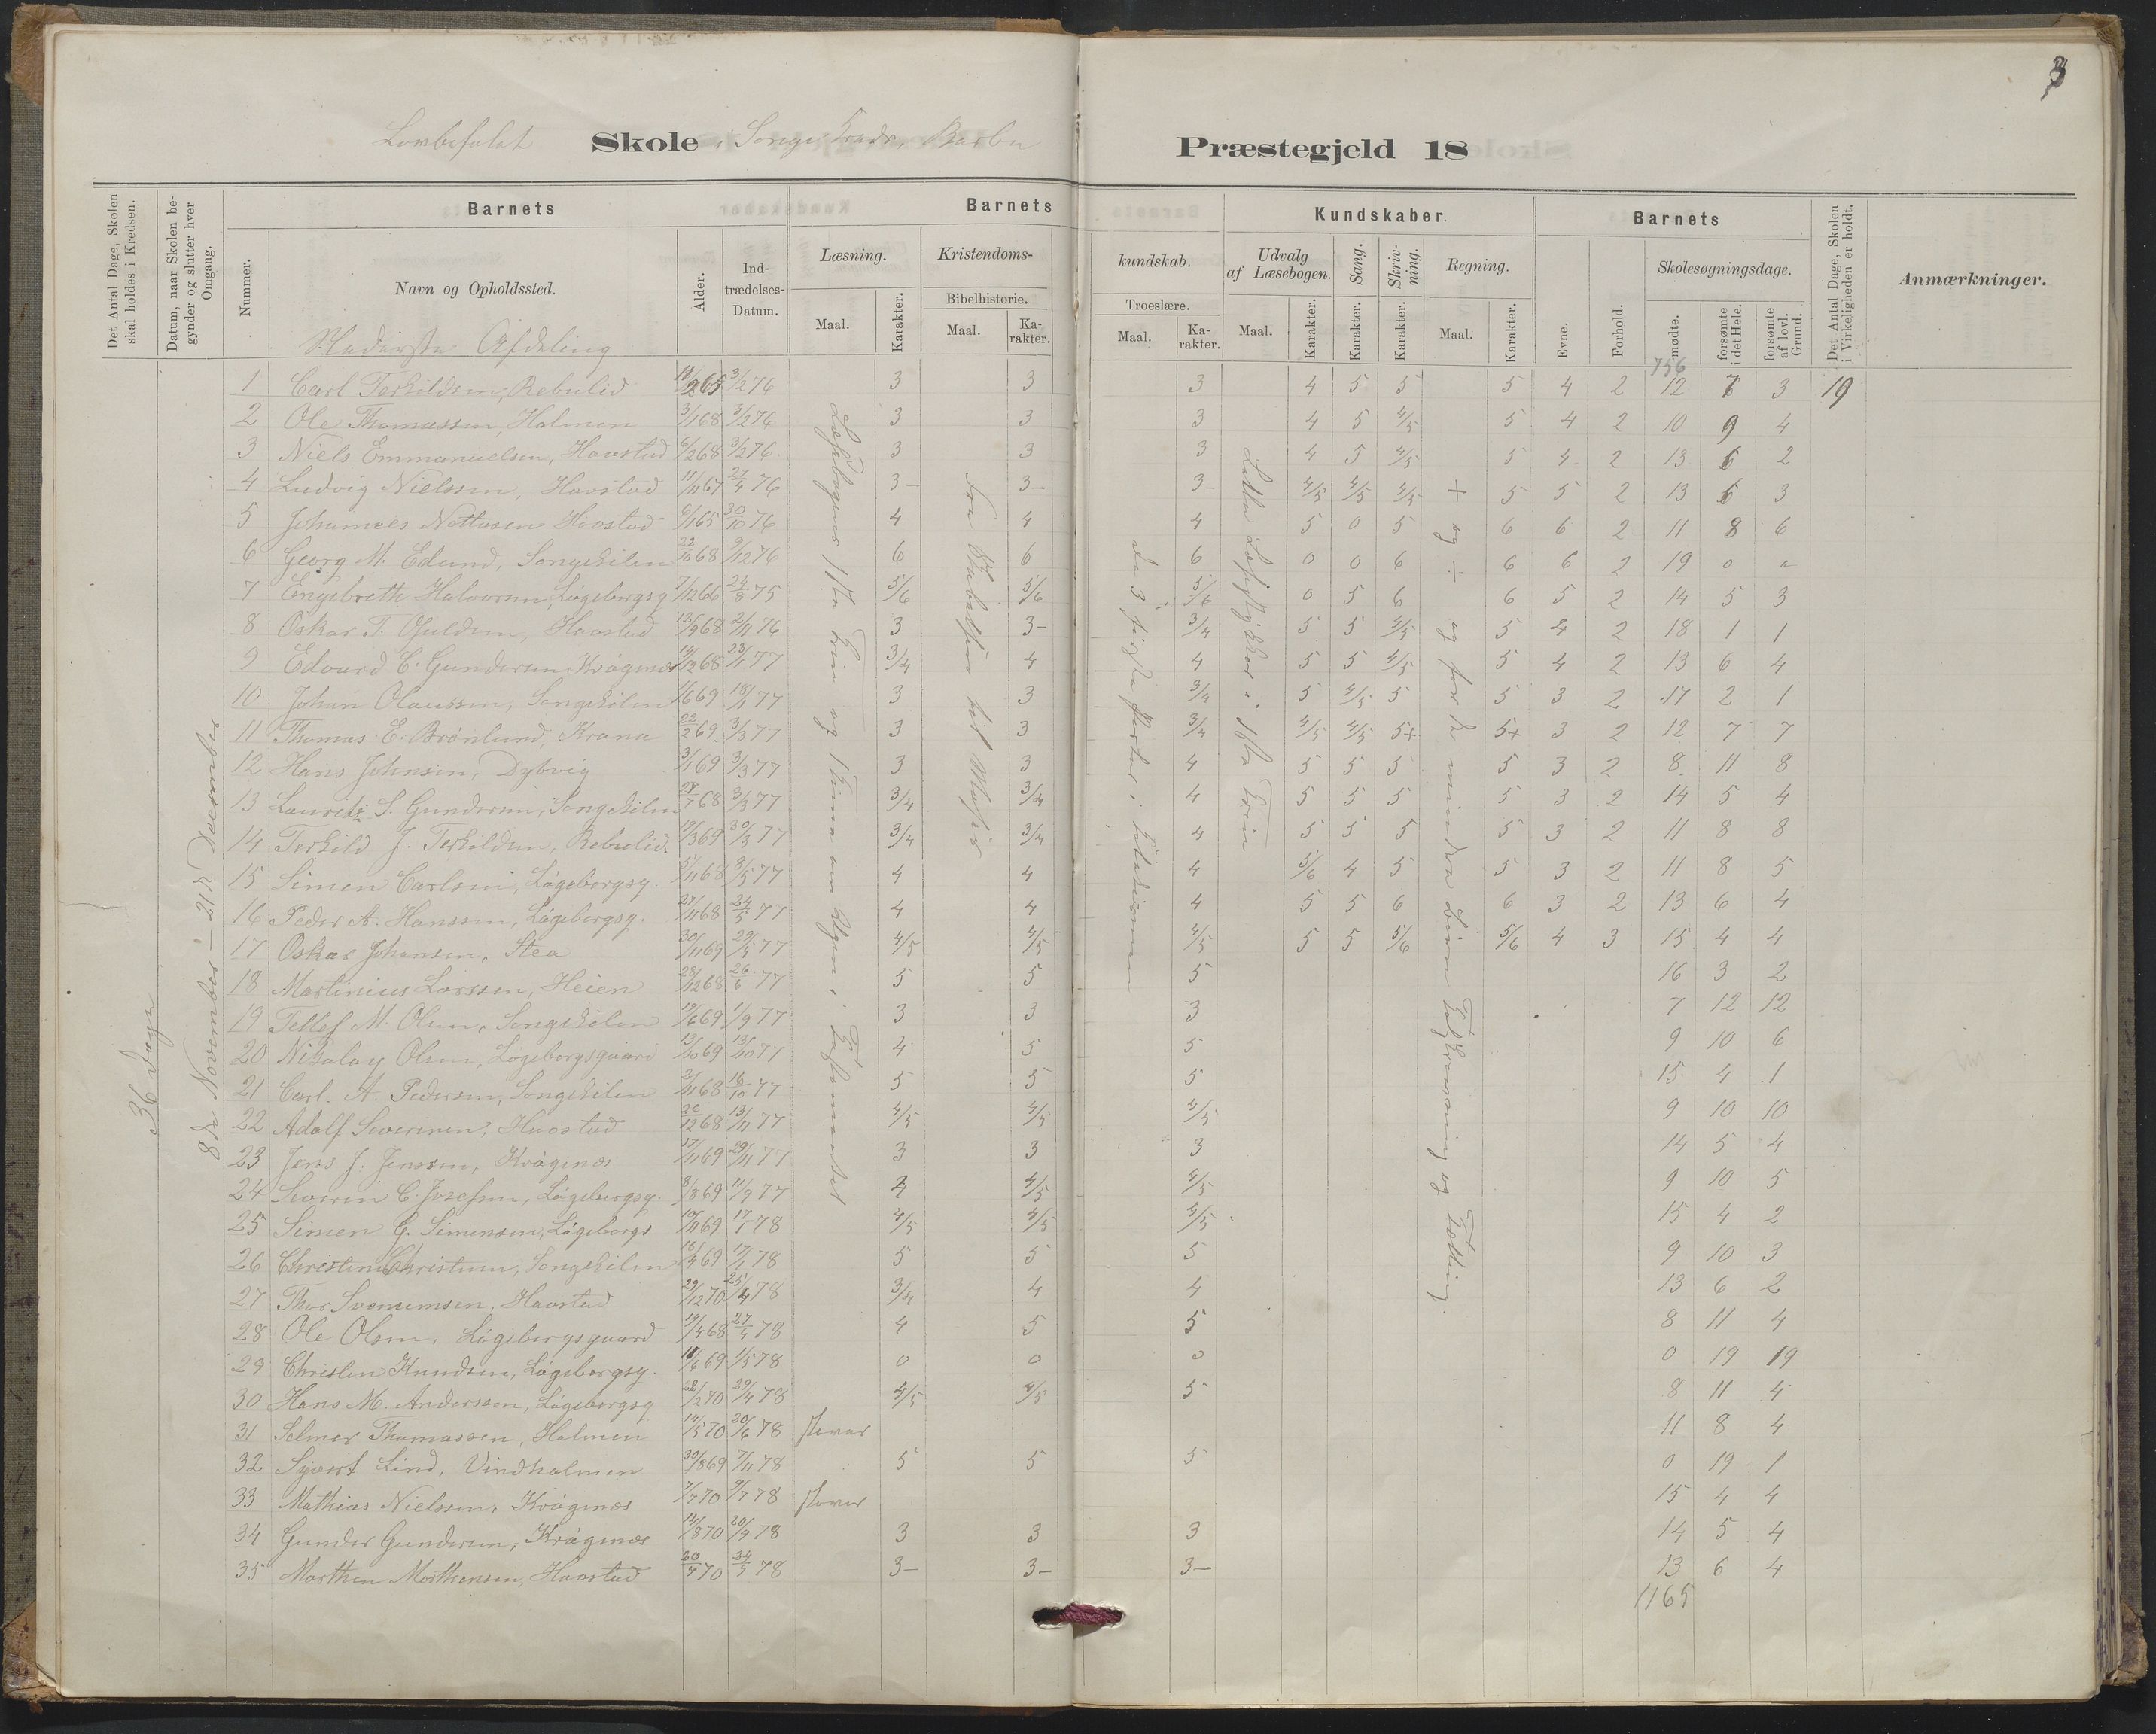 3
Lovbefalet Skole i Songe Kreds, Barbu Præstegjeld 18
Det Antal Dage, Skolen skal holdes i Kredsen.
Datum, naar Skolen begynder og slutter hver Omgang.
Barnets
Nummer.
Navn og Opholdssted.
Alder.
Indtrædelses-Datum.
Barnets
Læsning.
Maal.
Karakter.
Kristendoms-
Bibelhistorie.
Maal.
Karakter.
kundskab.
Troeslære.
Maal.
Karakter.
Kundskaber.
Udvalg af Læsebogen.
Maal.
Karakter.
Sang.
Karakter.
Skrivning.
Karakter.
Regning.
Maal.
Karakter.
Barnets
Evne.
Forhold.
Skolesøgningsdage.
mødte.
forsømte i det Hele.
forsømte af lovl. Grund.
Det Antal Dage, Skolen i Virkeligheden er holdt.
Anmærkninger.
Nederste Afdeling
756
36 Dage
8de November – 21de December
Læsebogens 1ste Trin og
Fra Skabelsen til Moses
de 3 første Parter i Katekismen
Lette Læsestykker i 1ste Trin
+ og ÷ og for de mindre Børn Talskrivning og Tælling
1 Carl Terkildsen, Rebulid 3/2 76 3 3 3 4 5 5 5 4 2 12 7 3 19
2 Ole Thomassen, Holmen 3/1 68 3/2 76 3 3 3 4 5 4/5 5 4 2 10 9 4
3 Niels Emmanuelsen, Havstad 6/2 68 3/2 76 3 3 3 4 5 4/5 5 4 2 13 6 2
4 Ludvig Nielssen, Havstad 11/11 67 27/4 76 3– 3– 3– 4/5 4/5 4/5 5 5 2 13 6 3
5 Johannes Nottosen Havstad 6/1 65 30/10 76 4 4 4 5 0 5 6 6 2 11 8 6
6 Georg M. Edund, Songekilen 22/10 68 9/12 76 6 6 6 0 0 6 6 6 2 19 0
7 Engebreth Halvorsen, Lögebergsg 1/12 66 24/8 75 5/6 5/6 5/6 0 5 6 6 5 2 14 5 3
8 Oskar T. Ofuldsen, Havstad 12/9 68 2/11 76 3 3– 3/4 5 5 4/5 5 4 2 18 1 1
9 Edvard C. Gundersen Krågenæs 23/1 77 3/4 4 4 5 5 4/5 5 4 2 13 6 4
10 Johan Olaussen, Songekilen 1/6 69 18/1 77 3 3 3/4 5 4/5 5 5 3 2 17 2 1
11 Thomas E. Brönlund, Krana 22/2 69. 3/3 77 3 3 3/4 4/5 4/5 5+ 5+ 3 2 12 7 7
12 Hans Johnsen, Dybvig 3/1 69 3/3 77 3 3 4 5 5 5 5 3 2 8 11 8
13 Lauritz S. Gundersen, Songekilen 28/7 68 3/3 77 3/4 3/4 4 5 5 5 5 3 2 14 5 4
14 Terkild J. Terkildsen, Rebulid. 19/3 69 30/3 77 3/4 3/4 4 5 5 5 5 3 2 11 8 8
15 Simen Carlsen, Lögebergsg. 3/5 77 4 4 4 5/6 4 5 5 3 2 11 8 5
16 Peder A. Hanssen, Lögebergsg. 27/11 68 24/5 77 4 4 4 5 5 6 6 3 2 13 6 4
17 Oskar Johansen, Stea 30/11 69 29/5 77 4/5 4/5 4/5 5 5 5/6 5/6 4 3 15 4 4
18 Martinius Larssen, Heien 28/12 68 26/6 77 5 5 5 16 3 2
19 Tellef M. Olsen, Songekilen 19/6 69 1/9 77 3 3 3 7 12 12
20 Nikolay Olsen, Lögebergsgaard 13/10 69 13/10 77 4 5 5 9 10 6
21 Carl. A. Pedersen, Songekilen 2/11 68 16/10 77 5 5 5 15 4 1
22 Adolf Severinen, Havstad 26/12 68 13/11 77 4/5 4/5 4/5 9 10 10
23 Jens J. Jenssen, Krågenæs 17/11 69 29/11 77 3 3 3 14 5 4
24 Severin C. Josefsen, Lögebergsg. 8/8 69 11/9 77 4 4/5 4/5 9 10 5
25 Simen G. Simensen, Lögebergs 10/11 69 17/1 78 4/5 4/5 4/5 15 4 2
26 Christen Christensen, Songekilen 16/4 69 17/1 78 5 5 5 9 10 3
27 Thor Svenumsen, Havstad 29/12 70 25/4 78 3/4 4 4 13 6 2
28 Ole Olsen, Lögebergsgaard 19/4 68 27/4 78 4 5 5 8 11 4
29 Christen Knudsen, Lögebergsg. 11/6 69 1/5 78 0 0 0 0 19 19
30 Hans M. Anderssen, Lögebergsg 22/2 70 29/4 78 4/5 4/5 5 8 11 4
31 Selmer Thomassen, Holmen 14/5 70 20/6 78 staver 11 8 4
32 Sjvert Lind, Vindholmen 30/8 69 7/11 78 5 5 5 0 19 1
33 Mathias Nielssen, Krågenæs 7/7 70 9/7 78 staver 15 4 4
34 Gunder Gundersen, Krågenæs 14/8 70 20/9 78 3 3 3 14 5 4
35 Morthen Morthensen, Havstad 20/7 70 24/5 78 3– 3– 3– 13 6 4
1165